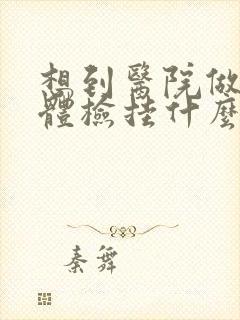 想到醫院做
體檢挂什麼
秦舞